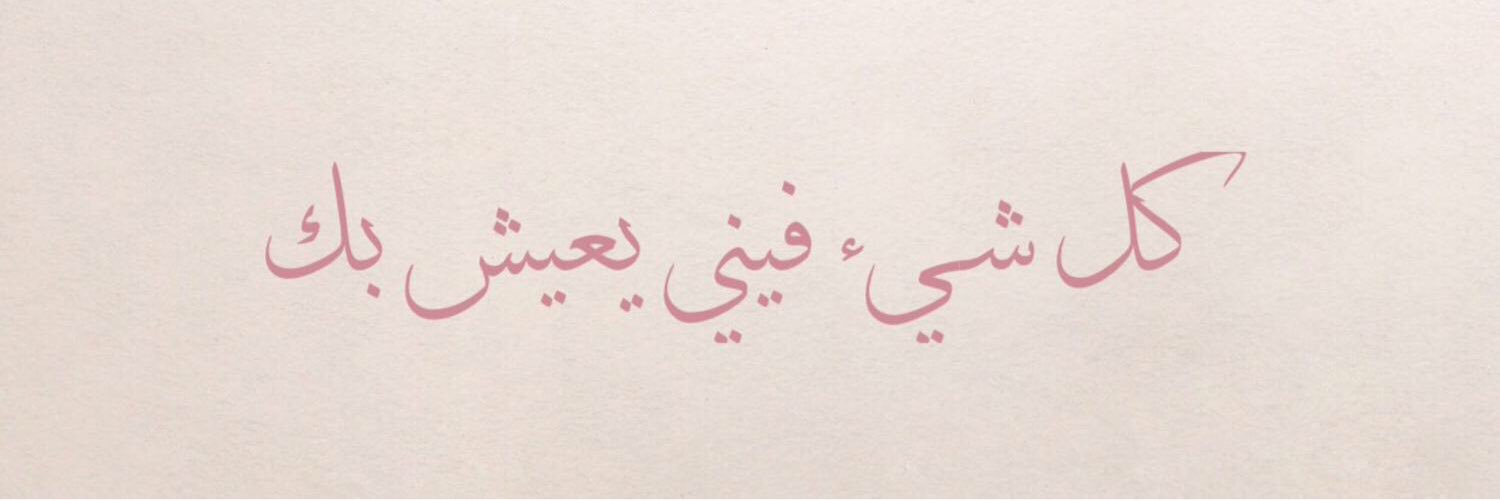 كل شيء فيني يعيش بك